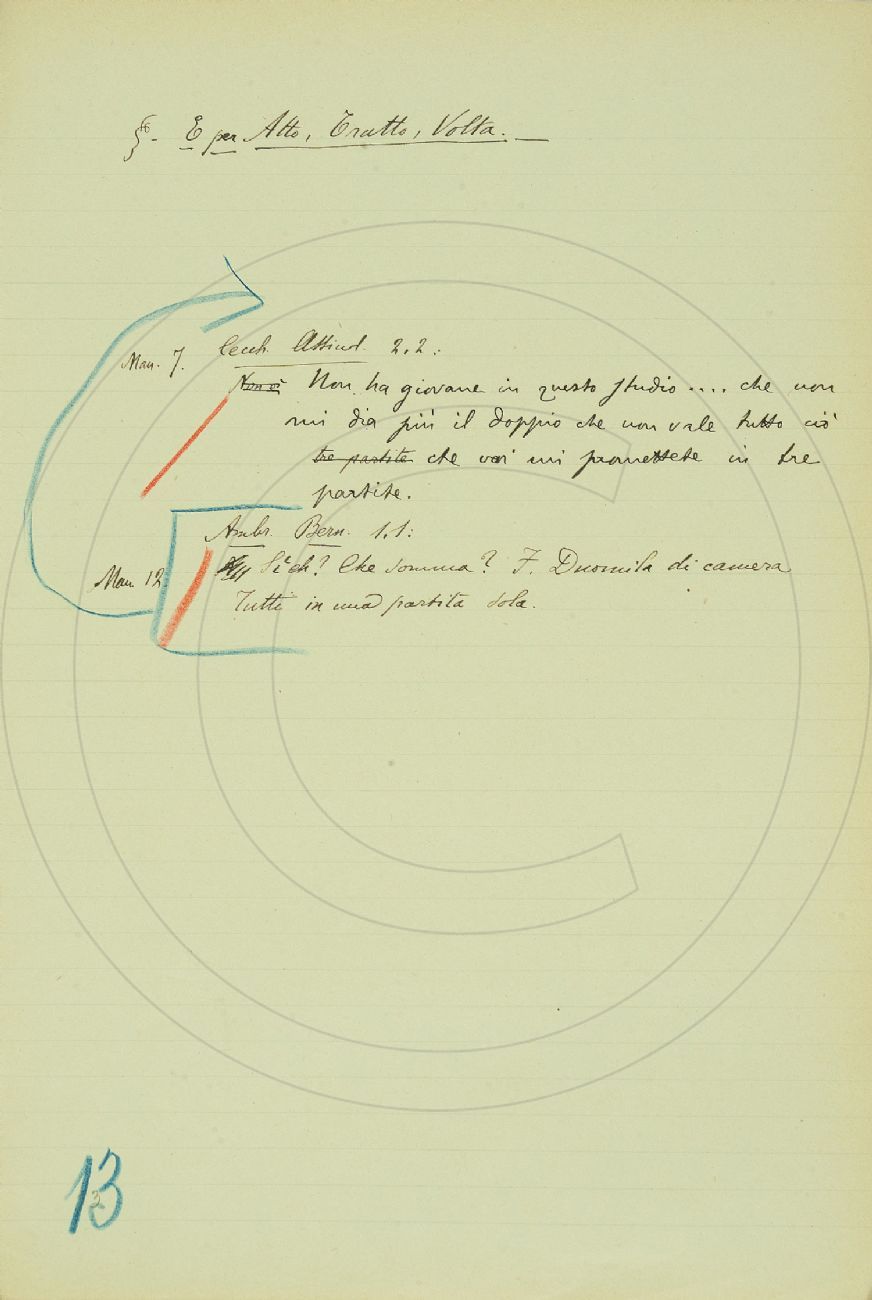 §. E per Atto, Tratto, Volta. —
Man. 7. Cecch. Assiuol. 2.2.:
Non vi Non ha giovane in questo studio .... che non
mi dia più il doppio che non vale tutto ciò
tre partite che voi mi promettete in tre
partite.
Ambr. Bern. 1.1:
Man. 12. Sì eh? Che somma? F. Duomila di camera
Tutti in una partita sola.
13